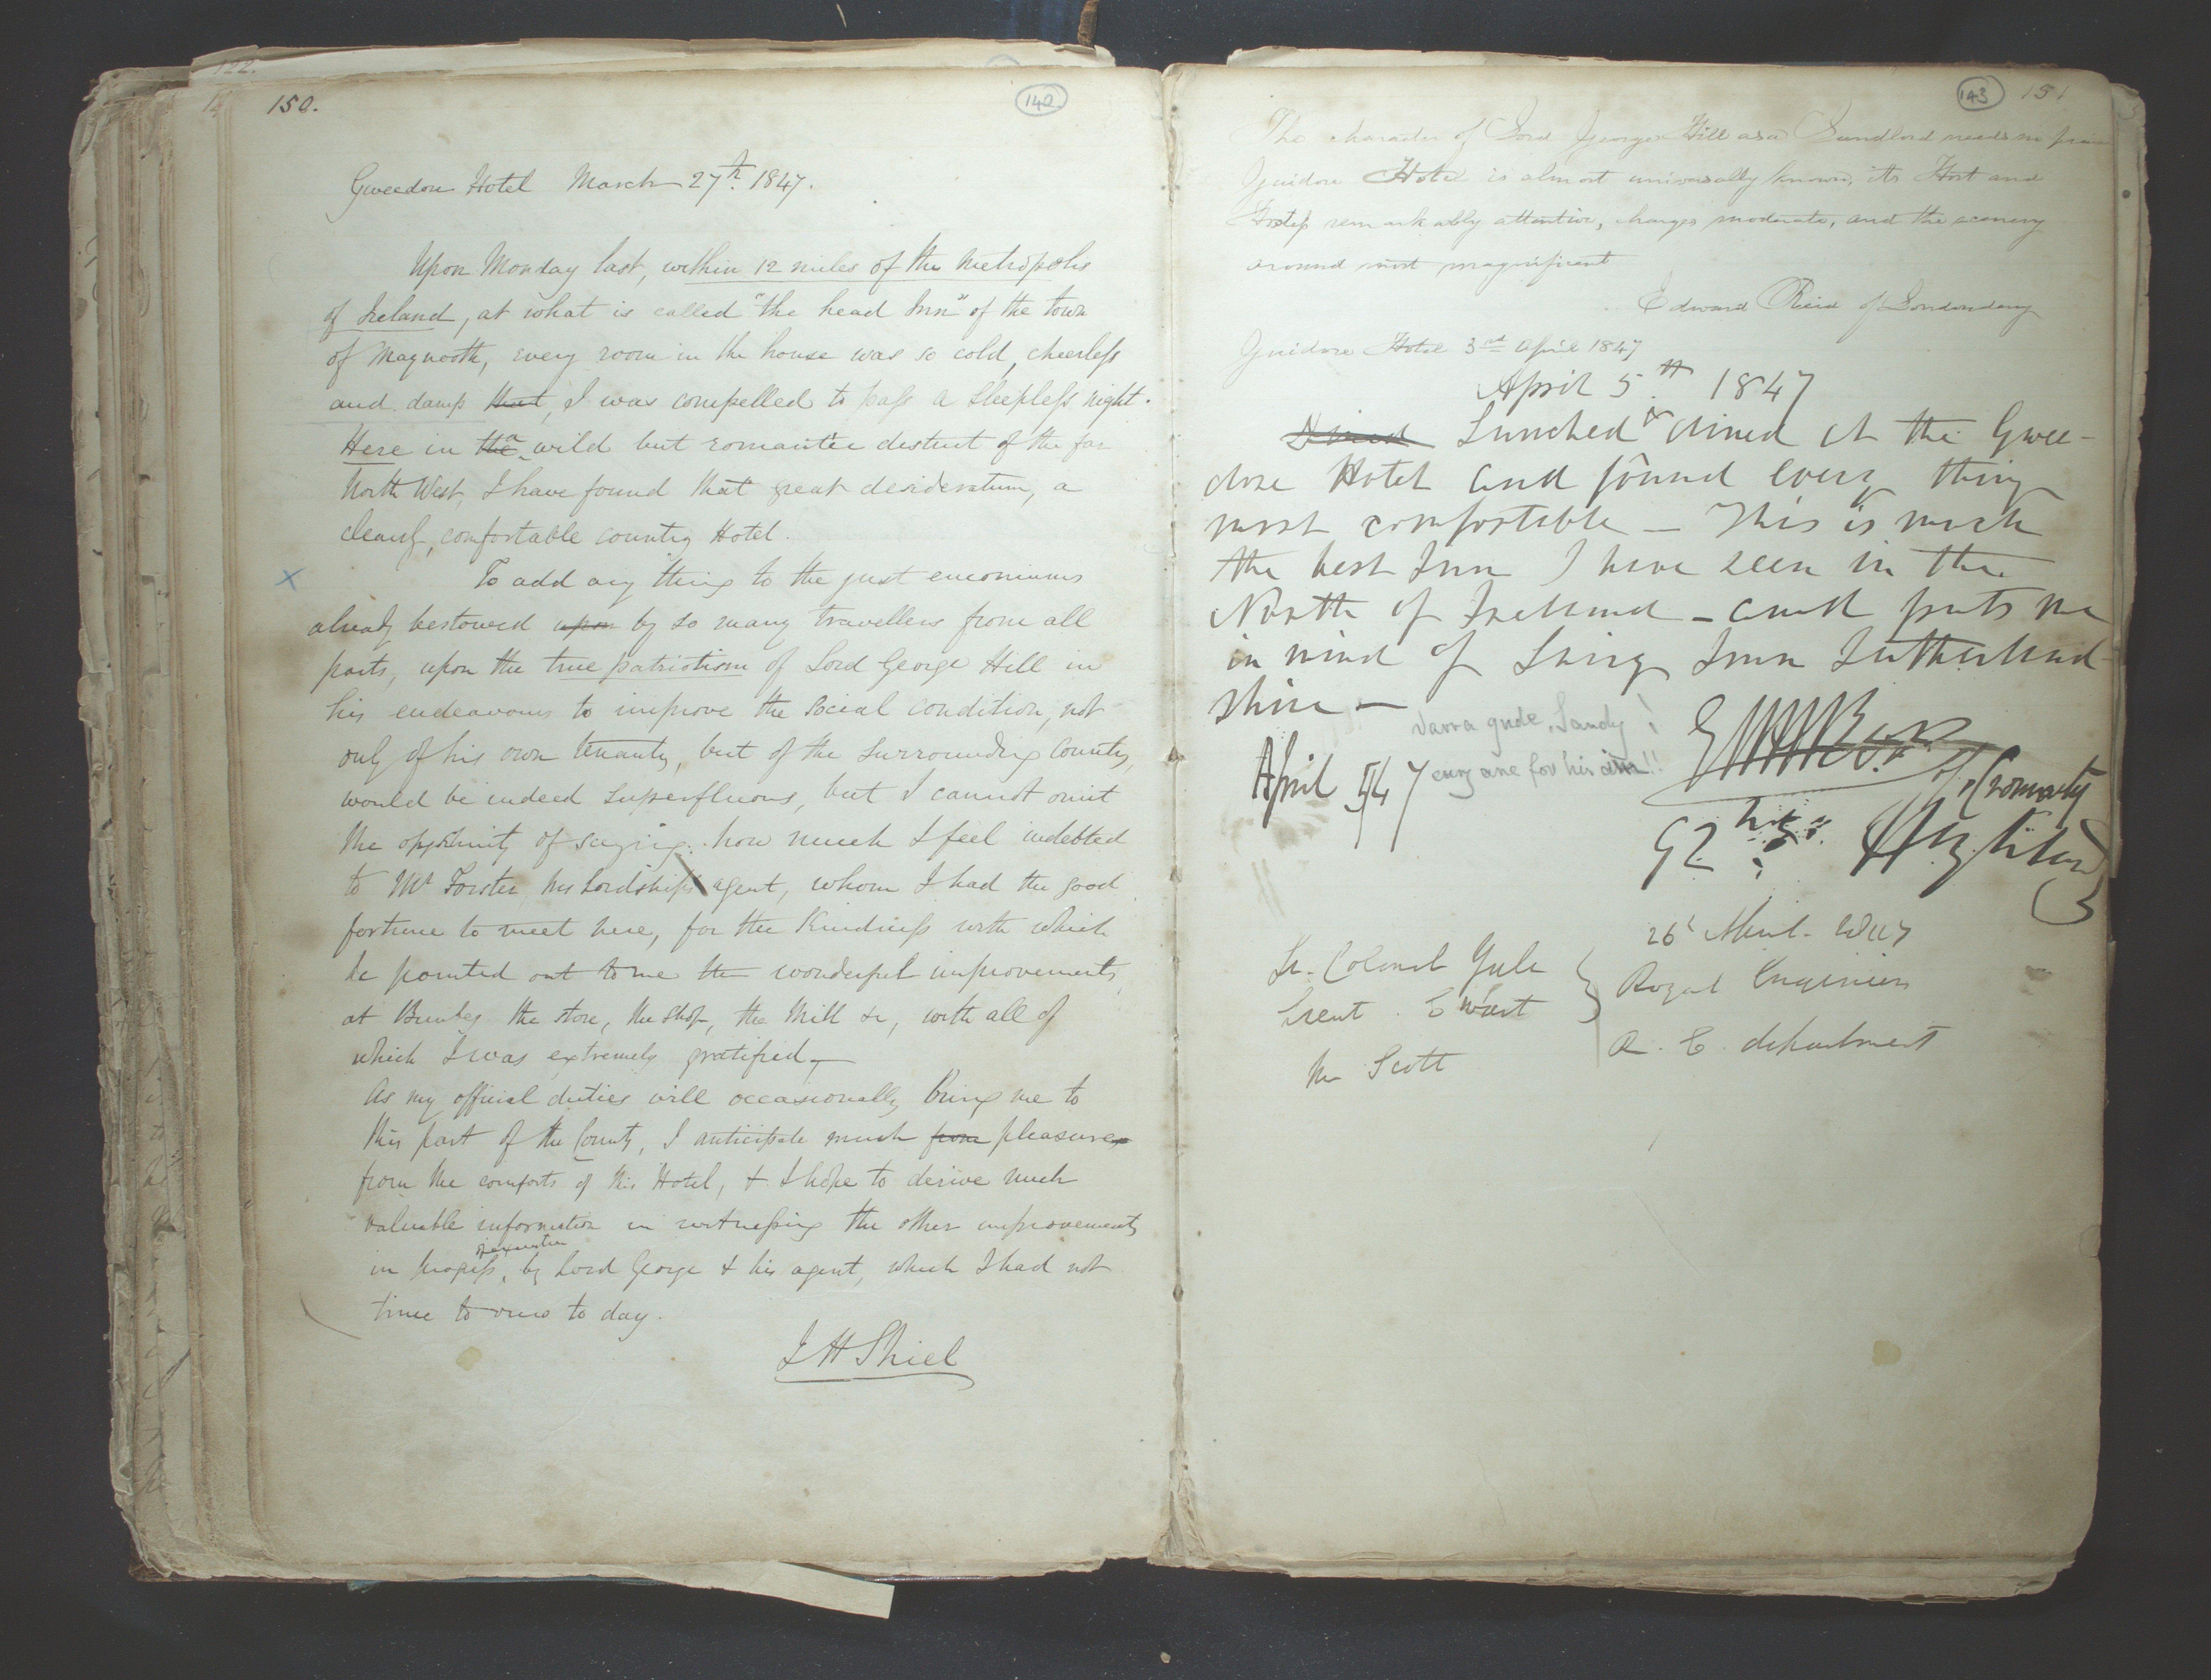 122.
150.
142
Gweedore Hotel March 27th. 1847.
Upon Monday last, within 12 miles of the Metropolis
of Ireland, at what is called "the head Inn" of the town
of Maynooth, every room in the house was so cold, cheerless
and damp that, I was compelled to pass a sleepless night.
Here in the a wild but romantic district of the far
North West, I have found that great desideratum, a
cleanly, comfortable country Hotel.
To add any thing to the just encomiums
already bestowed upon by so many travellers from all
parts, upon the true patriotism of Lord George Hill in
his endeavours to improve the social condition, not
only of his own tenantry, but of the surrounding Country,
would be indeed superfluous, but I cannot omit
the opportunity of saying how much I feel indebted
to Mr Forster his Lordship's agent, whom I had the good
fortune to meet here, for the kindness with which
he pointed out to me the wonderful improvements
at Bunbeg the store, the shop, the Mill &c, with all of
which I was extremely gratified—
As my official duties will occasionally bring me to
this part of the County, I anticipate much from pleasure
from the comforts of this Hotel, & I hope to derive much
valuable information in witnessing the other improvements
in progress, of execution by Lord George & his agent, which I had not
time to view to day.
J H Shiel
143
151
The character of Lord George Hill as a Landlord needs no
Guidore Hotel is almost universally known, its Host and
Hostess remarkably attentive, charges moderate, and the scenery
around most magnificent
Edward Reid of Londonderry
Guidore Hotel 3rd April 1847
April 5th 1847
Dined Lunched & dined at the Gwee-
dore Hotel and found every thing
most comfortable — This is much
the best Inn I have seen in the
North of Ireland — and puts me
in mind of Lairg Inn Sutherland
shire —
Varra gude, Sandy!
evry ane for his ain!!
April 5/47
of Cromarty
92nd Highlanders
26 April 1847
Lt. Colonel Yule
Lieut. Ewart
Royal Engineers
Mr Scott
R. E. department